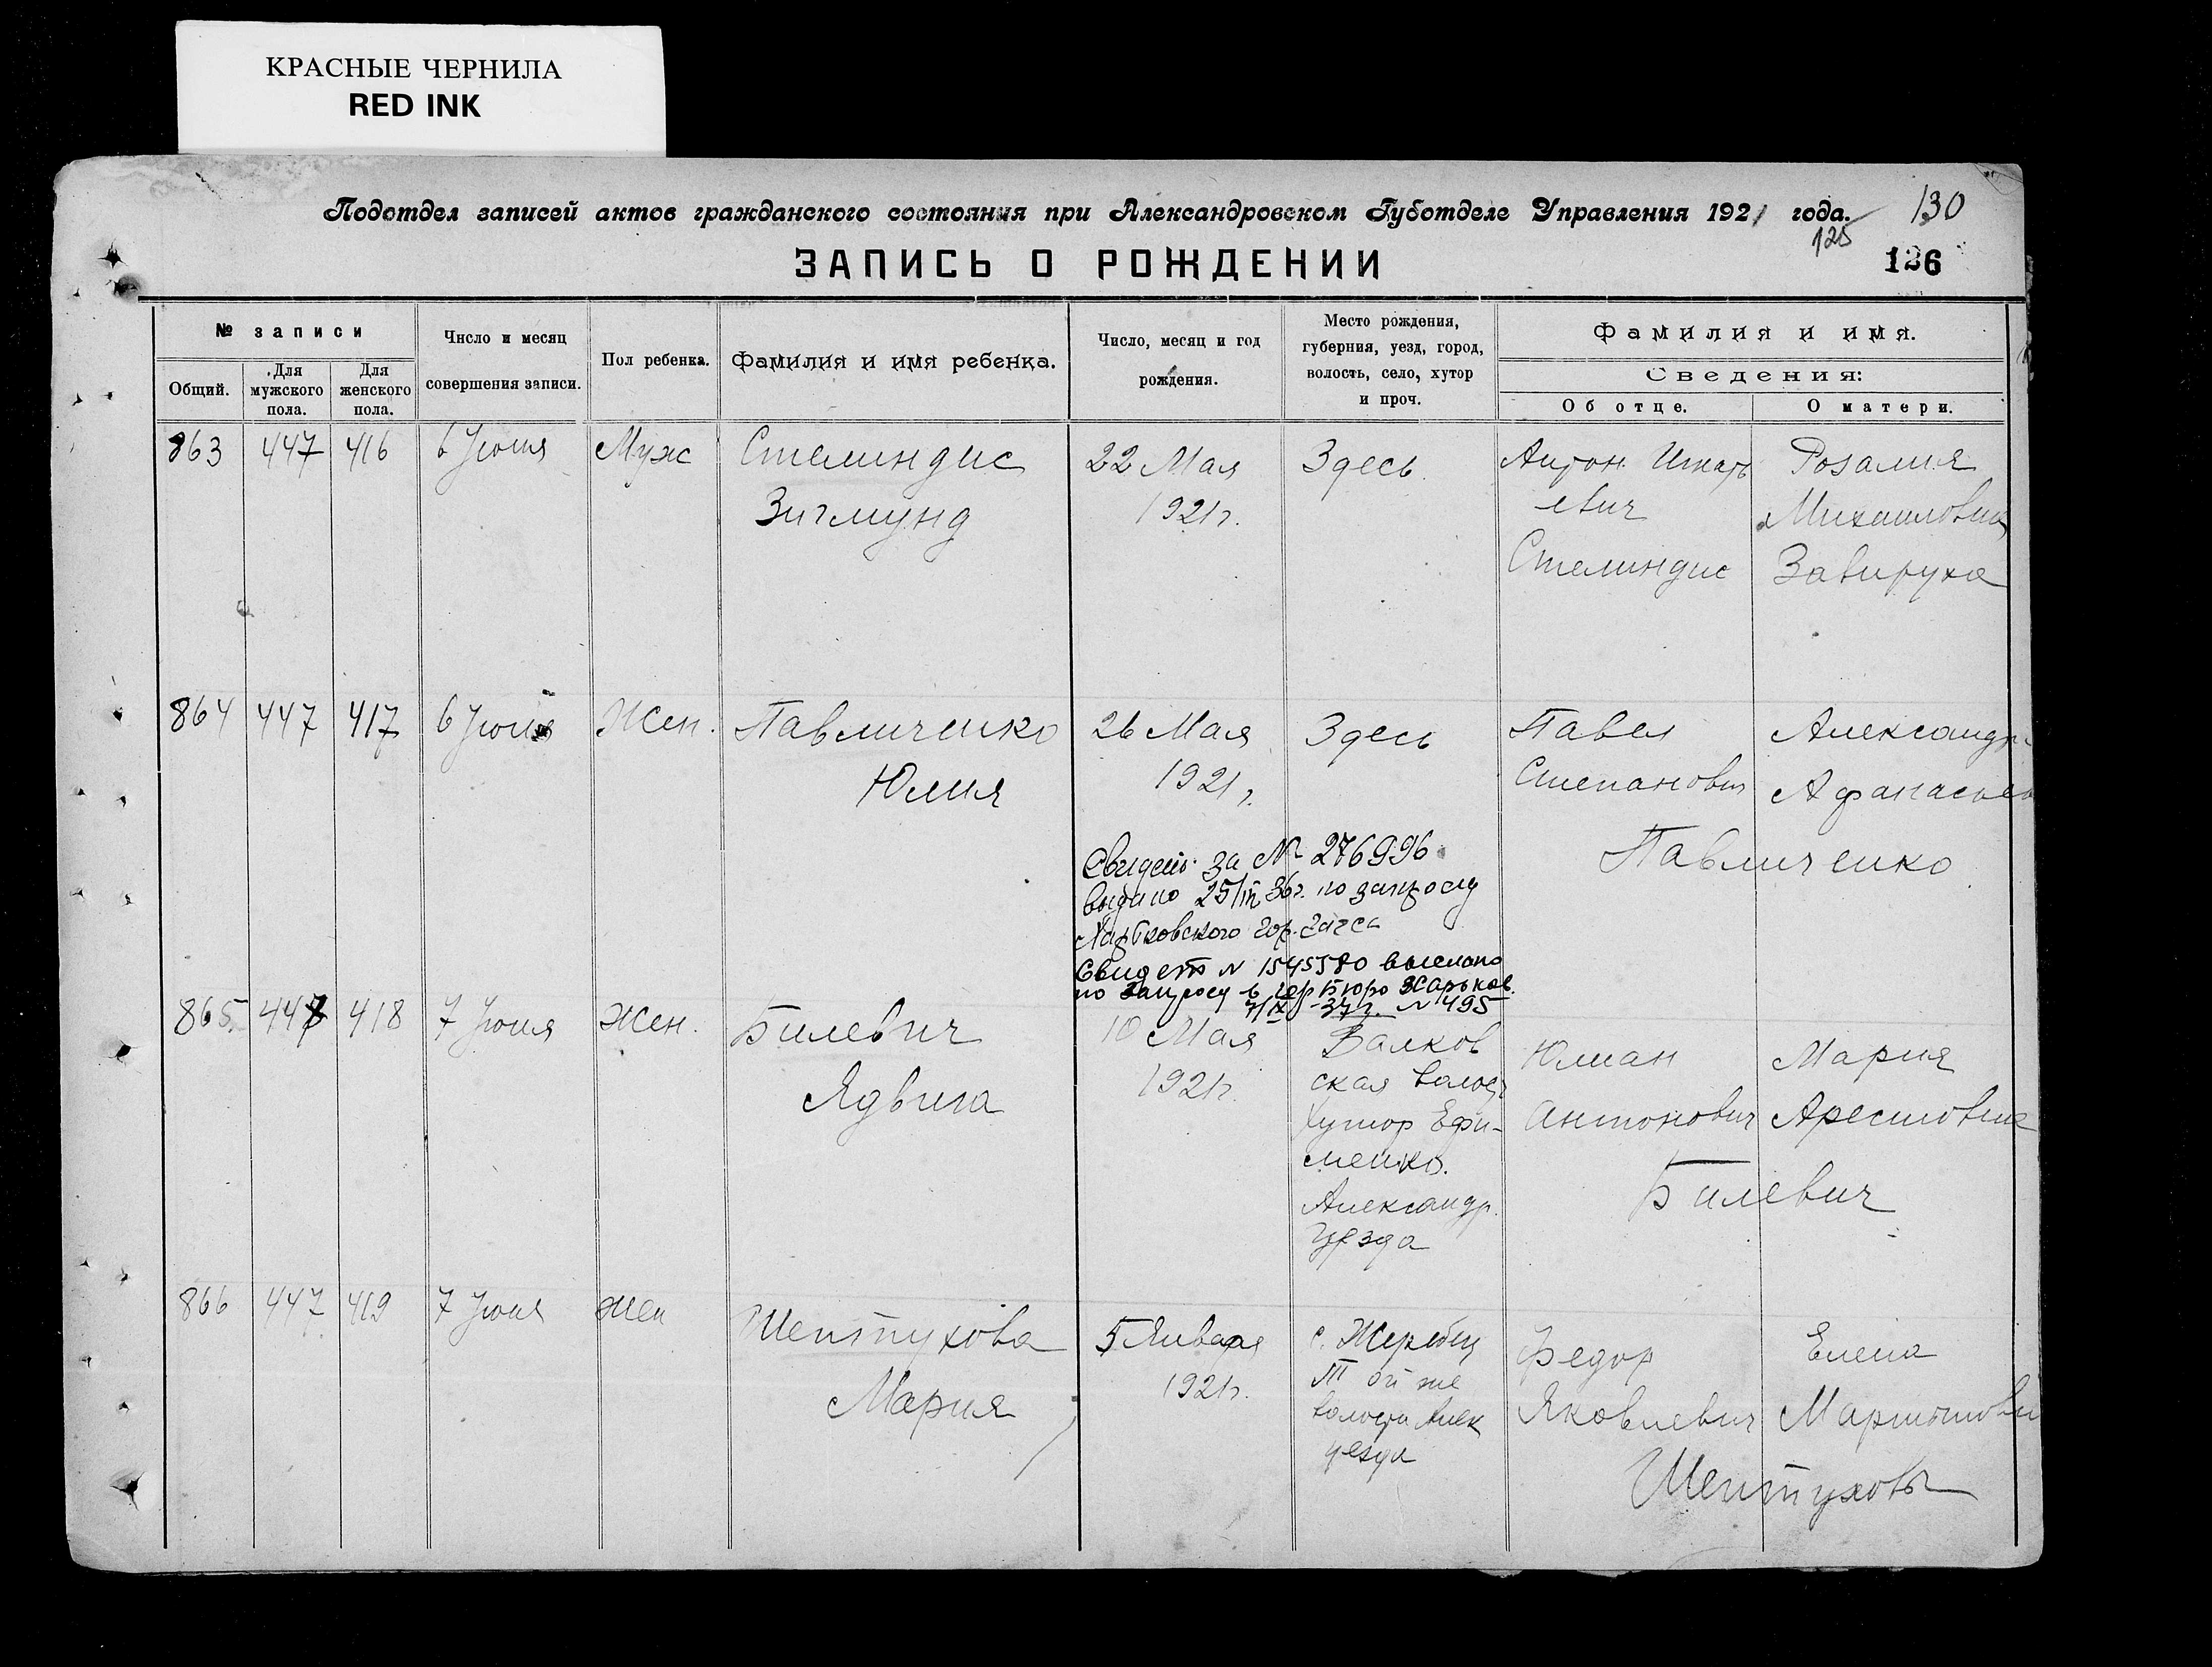 КРАСНЫЕ ЧЕРНИЛА
RED INK
Подотдел записей актов гражданского состояния при Александровском Губотделе Управления 1921 года.
130
125
126
ЗАПИСЬ О РОЖДЕНИИ
№ записи
Общий.
Для мужского пола.
Для женского пола.
Число и месяц совершения записи.
Пол ребенка.
Фамилия и имя ребенка.
Число, месяц и год рождения.
Место рождения, губерния, уезд, город, волость, село, хутор и проч.
Фамилия и имя.
Сведения:
Об отце.
О матери.
863 447 416 6 Июня Муж Стелиндис 22 Мая Здесь Антон Розалия
Зигмунд 1921г. Михаиловна
Стелиндис Завируха
864 447 417 6 Июня Жен. Павличенко 26 Мая Здесь Павел Александр
Юлия 1921г. Степанович Афанасьев
Павличенко
Свидет. за № 276996
выдано 25/III 36г. по запросу
Харьковского гор. Загса
Свидет № 1545580 выслано
по запросу в гор Бюро Харьков.
7/IX - 37г. № 495
865 447 418 7 Июня Жен. Билевич 10 Мая Валков Юлиан Мария
Ядвига 1921г. ская волос Антонович Арестовна
хутор Ефи-
менко.
Александр.
Уезда
Билевич
866 447 419 7 Июня Жен Шептухова 5 Января с. Жеребец Федор Елена
Мария 1921г. той же Яковлевич Мартыновн
волости Алек
уезда
Шептуховы